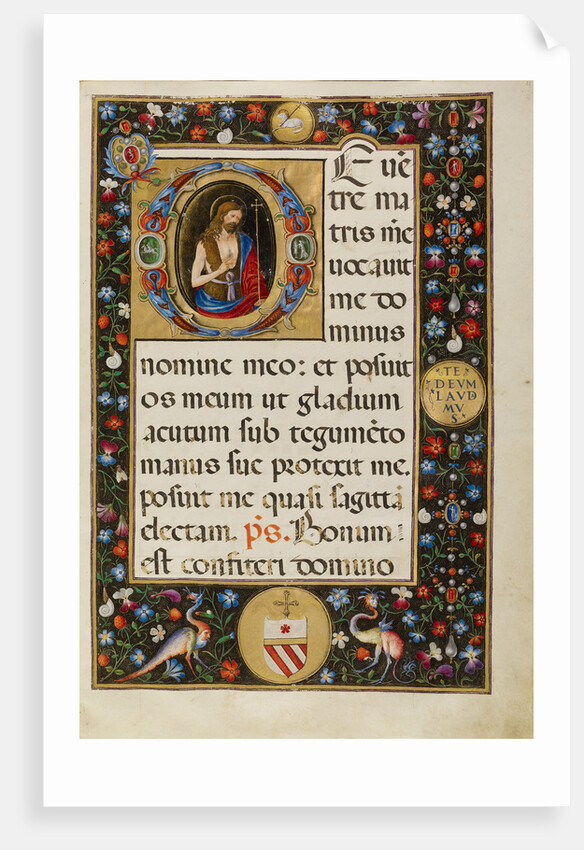 D Euē
tre ma
tris mēe
uocauit
me do
minus
nomine meo: et posuit
os meum ut gladium
acutum sub tegumēto
manus sue protexit me.
posuit me quasi sagittā
electam. p̄s. Bonum
est confiteri domino
TE
DEVM
LAVD
MV
S